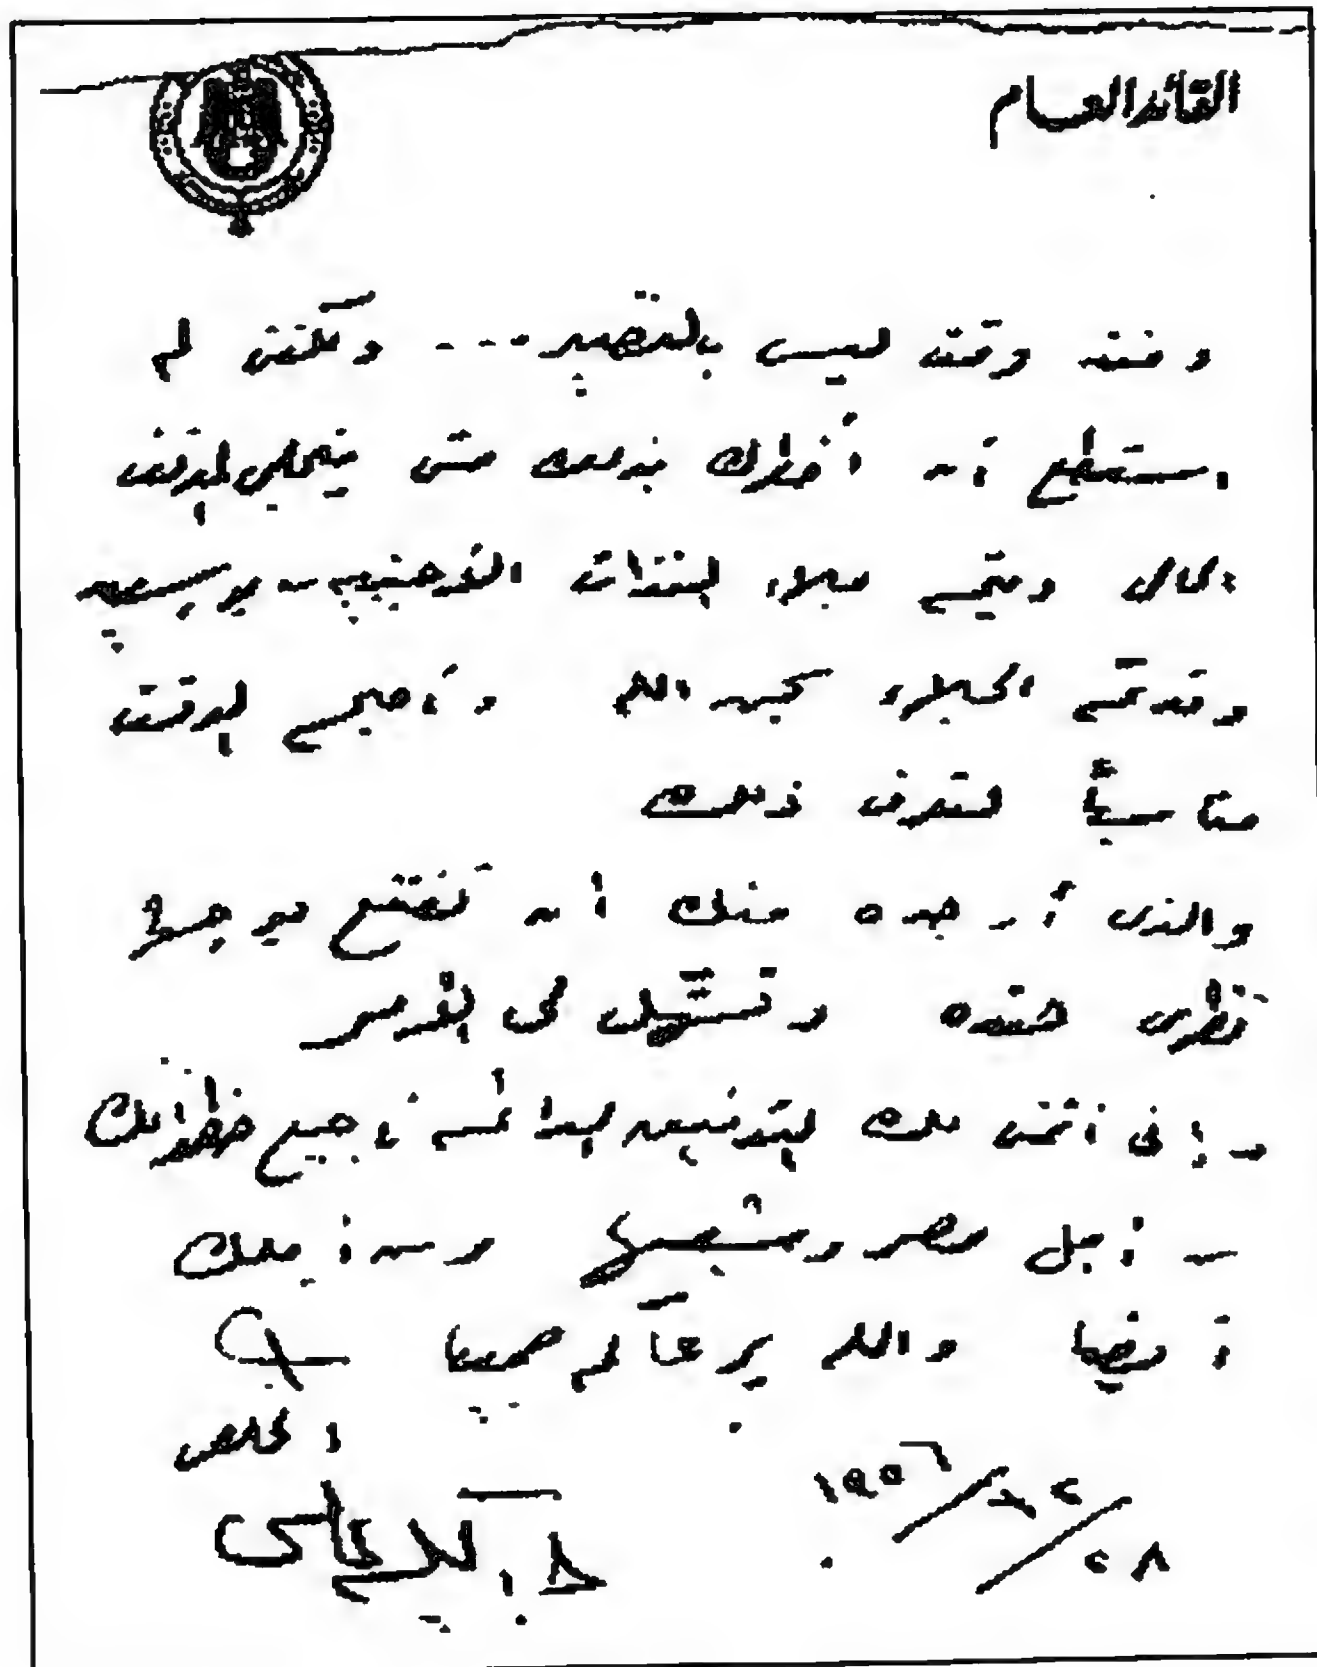 القائد العام
منذ وقت ليس بالقصير ... ولكننى لم
استطع أن أخطرك بذلك حتى ينجلى الموقف
الحالى ويتم جلاء القوات الأجنبية من بورسعيد
وقد تم الجلاء بحمد الله وأصبح الوقت
مناسباً لتعرف ذلك
والذى أرجوه منك أن تقتنع بوجهة
نظرى هذه وتستقيل من الأمر
وإنى أتمنى لك التوفيق الدائم فى جميع خطواتك
من أجل مصر وشعبها ومن أجلك
أيضا والله يرعاكم جميعا
المخلص
عبد الحكيم عامر
٢٨/١٢/١٩٥٦